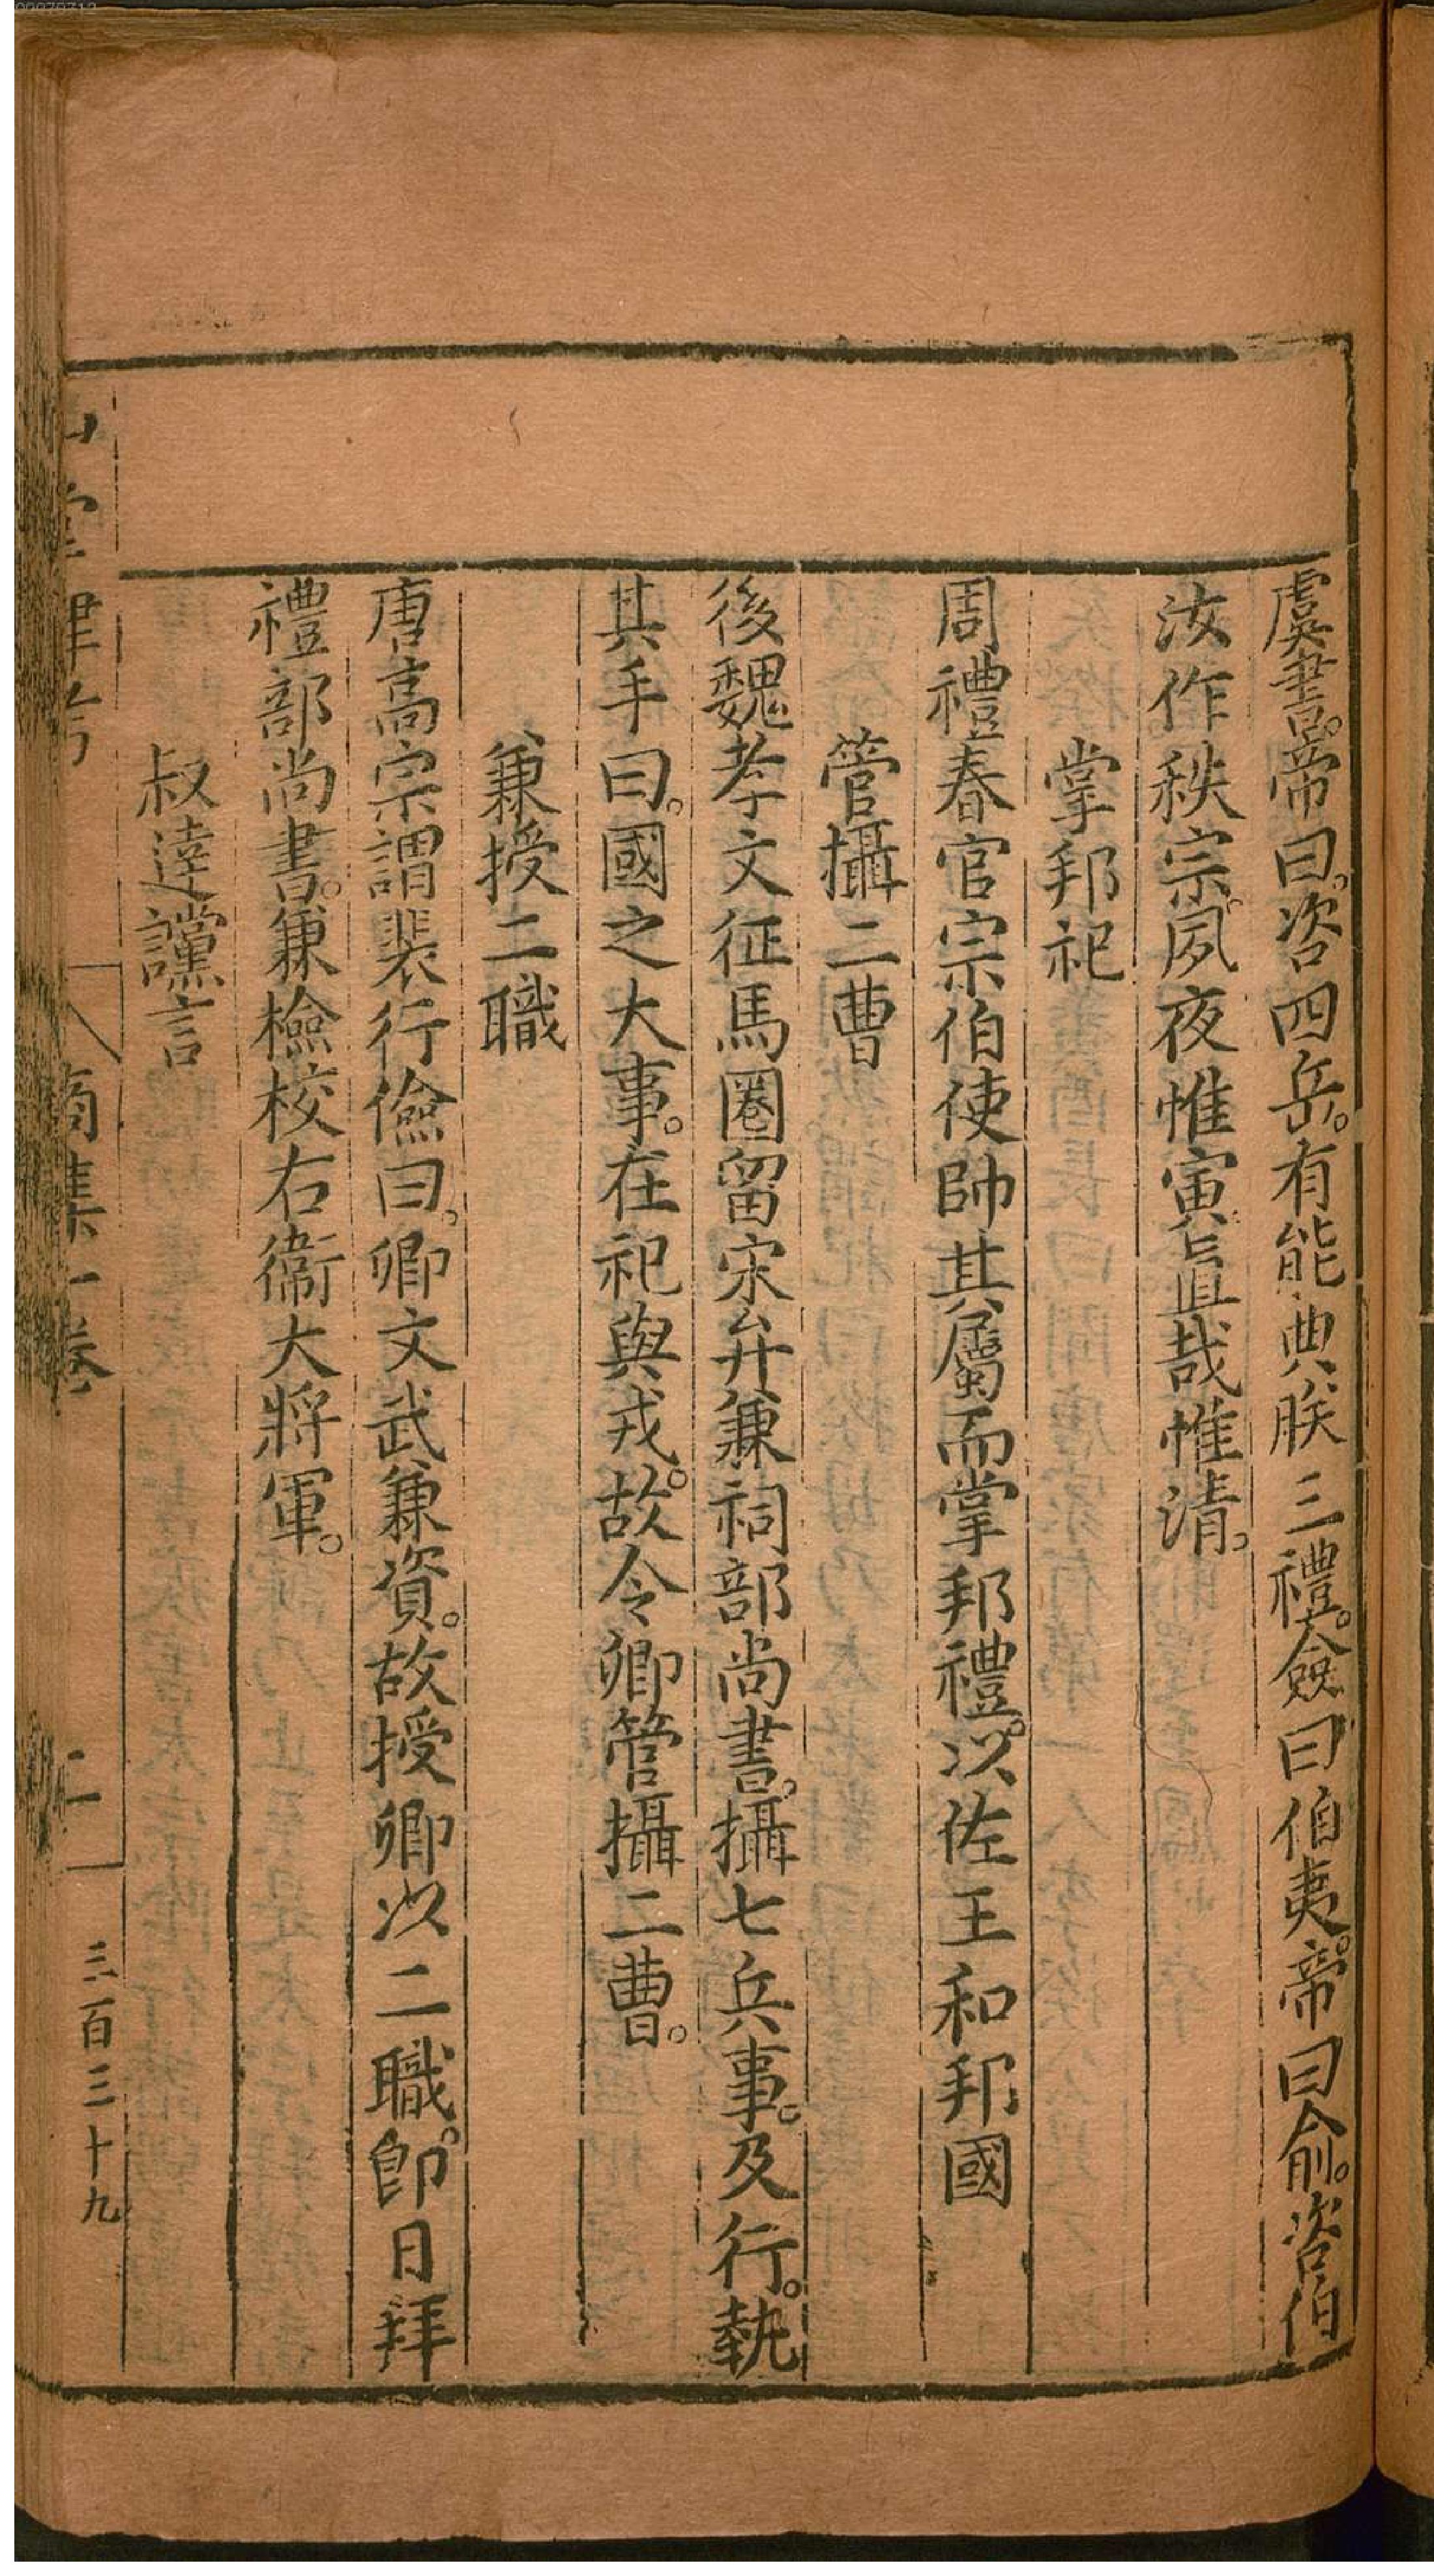 虞書。帝曰。咨四岳。有能典朕三禮。僉曰伯夷。帝曰俞。咨伯
汝作秩宗。夙夜惟寅。直哉惟清。
掌邦祀
周禮春官宗伯使帥其屬而掌邦禮。以佐王和邦國
管攝二曹
後魏孝文征馬圈留宋弁兼祠部尚書。攝七兵事。及行。執
其手曰。國之大事。在祀與戎。故令卿管攝二曹。
兼授二職
唐高宗謂裴行儉曰。卿文武兼資。故授卿以二職。卽日拜
禮部尚書。兼檢校右衞大將軍。
叔達讜言
山堂肆考
商集一卷
二
三百三十九